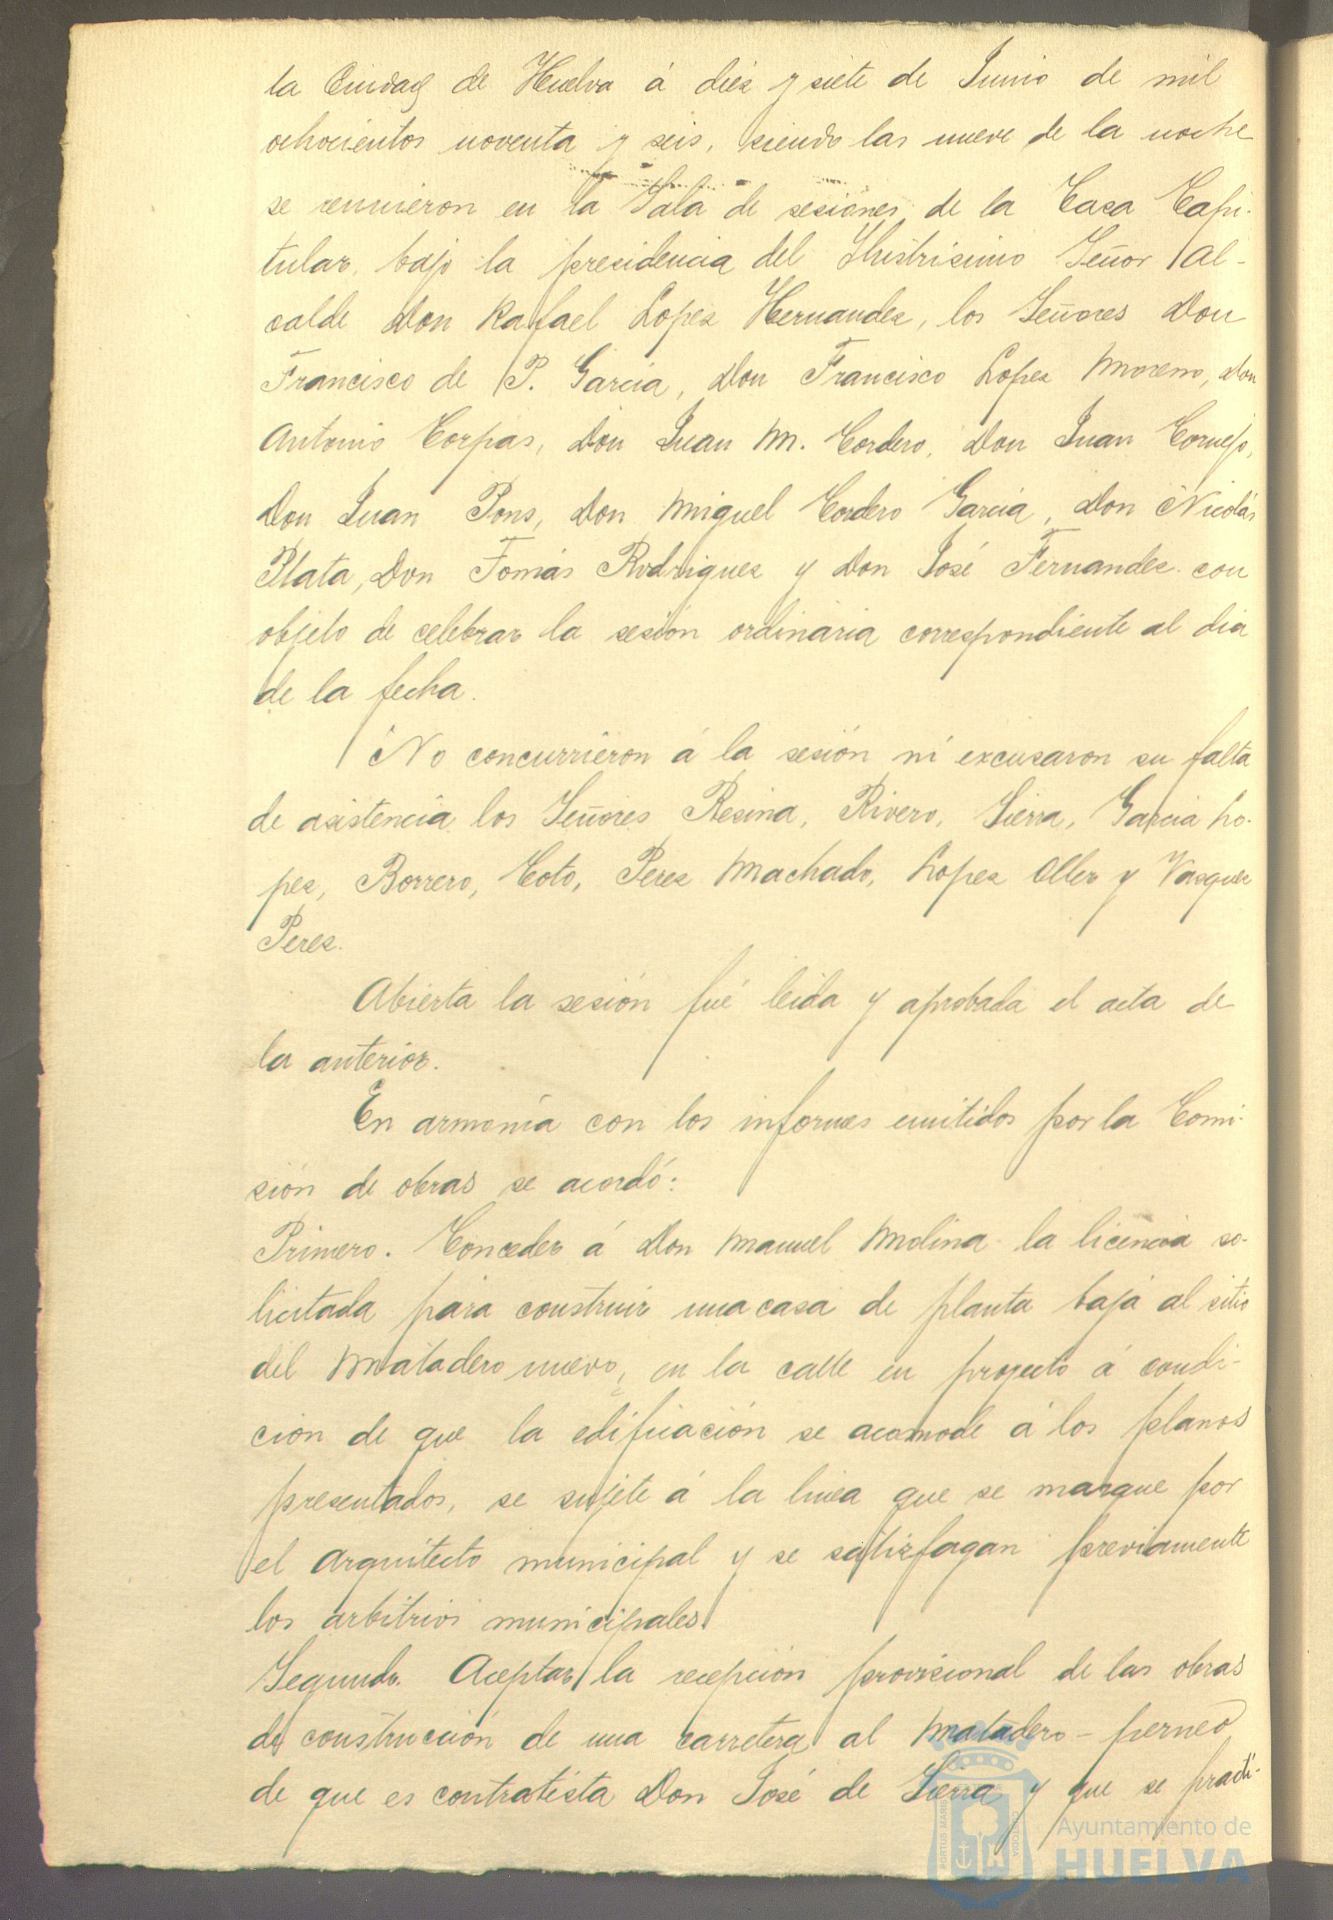 la Ciudad de Huelva á diez y siete de Junio de mil
ochocientos noventa y seis, siendo las nueve de la noche
se reunieron en la Sala de sesiones de la Casa Capi-
tular, bajo la presidencia del Ilustrisimo Señor Al-
calde Don Rafael Lopez Hernandez, los Señores Don
Francisco de P. Garcia, Don Francisco Lopez Moreno, Don
Antonio Corpas, Don Juan M. Cordero, Don Juan Cornejo,
Don Juan Pons, Don Miguel Cordero Garcia, Don Nicolás
Plata, Don Tomás Rodriguez y Don José Fernandez con
objeto de celebrar la sesión ordinaria correspondiente al dia
de la fecha.
No concurrieron á la sesión ni excusaron su falta
de asistencia los Señores Resina, Rivero, Sierra, Garcia Lo-
pez, Borrero, Coto, Perez Machado, Lopez Oller y Vazquez
Perez.
Abierta la sesión fué leida y aprobada el acta de
la anterior.
En armonía con los informes emitidos por la Comi-
sión de obras se acordó:
Primero. Conceder á Don Manuel Molina la licencia so-
licitada para construir una casa de planta baja al sitio
del Matadero nuevo, en la calle en proyecto á condi-
ción de que la edificación se acomode á los planos
presentados, se sujete á la linea que se marque por
el Arquitecto municipal y se satisfagan previamente
los arbitrios municipales.
Segundo. Aceptar la recepción provisional de las obras
de construcción de una carretera al Matadero-perneo
de que es contratista Don José de Sierra y que se practi-
PORTUS MARIS
CUSTODIA
Ayuntamiento de
HUELVA